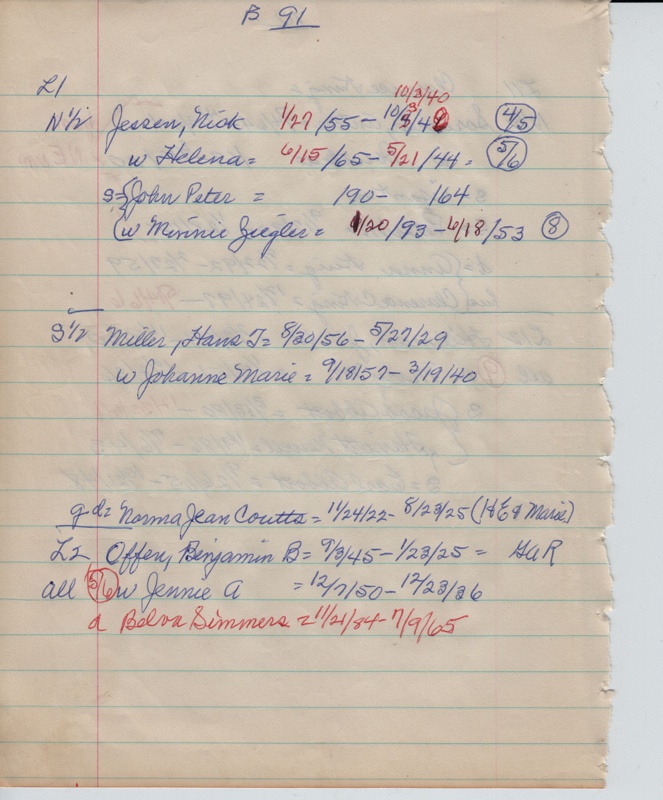 B 91
L1
10/3/40
N 1/2 Jessen, Nick 1/27/55 - 10/3/40 4/5
w Helena = 6/15/65 - 5/21/44 = 5/6
s = John Peter = 190- 164
w Minnie Ziegler = 1/20/93 - 6/18/53 8
S 1/2 Miller, Hans J = 8/30/56 - 5/27/29
w Johanne Marie = 9/18/57 - 3/19/40
gd = Norma Jean Coutts = 11/24/22 - 8/23/25 (H E & Marie)
L2 Offen, Benjamin B = 9/3/45 - 1/23/25 = GAR
all 5/6 w Jennie A = 12/7/50 - 12/23/36
d Belva Simmers = 11/21/84 - 7/9/65